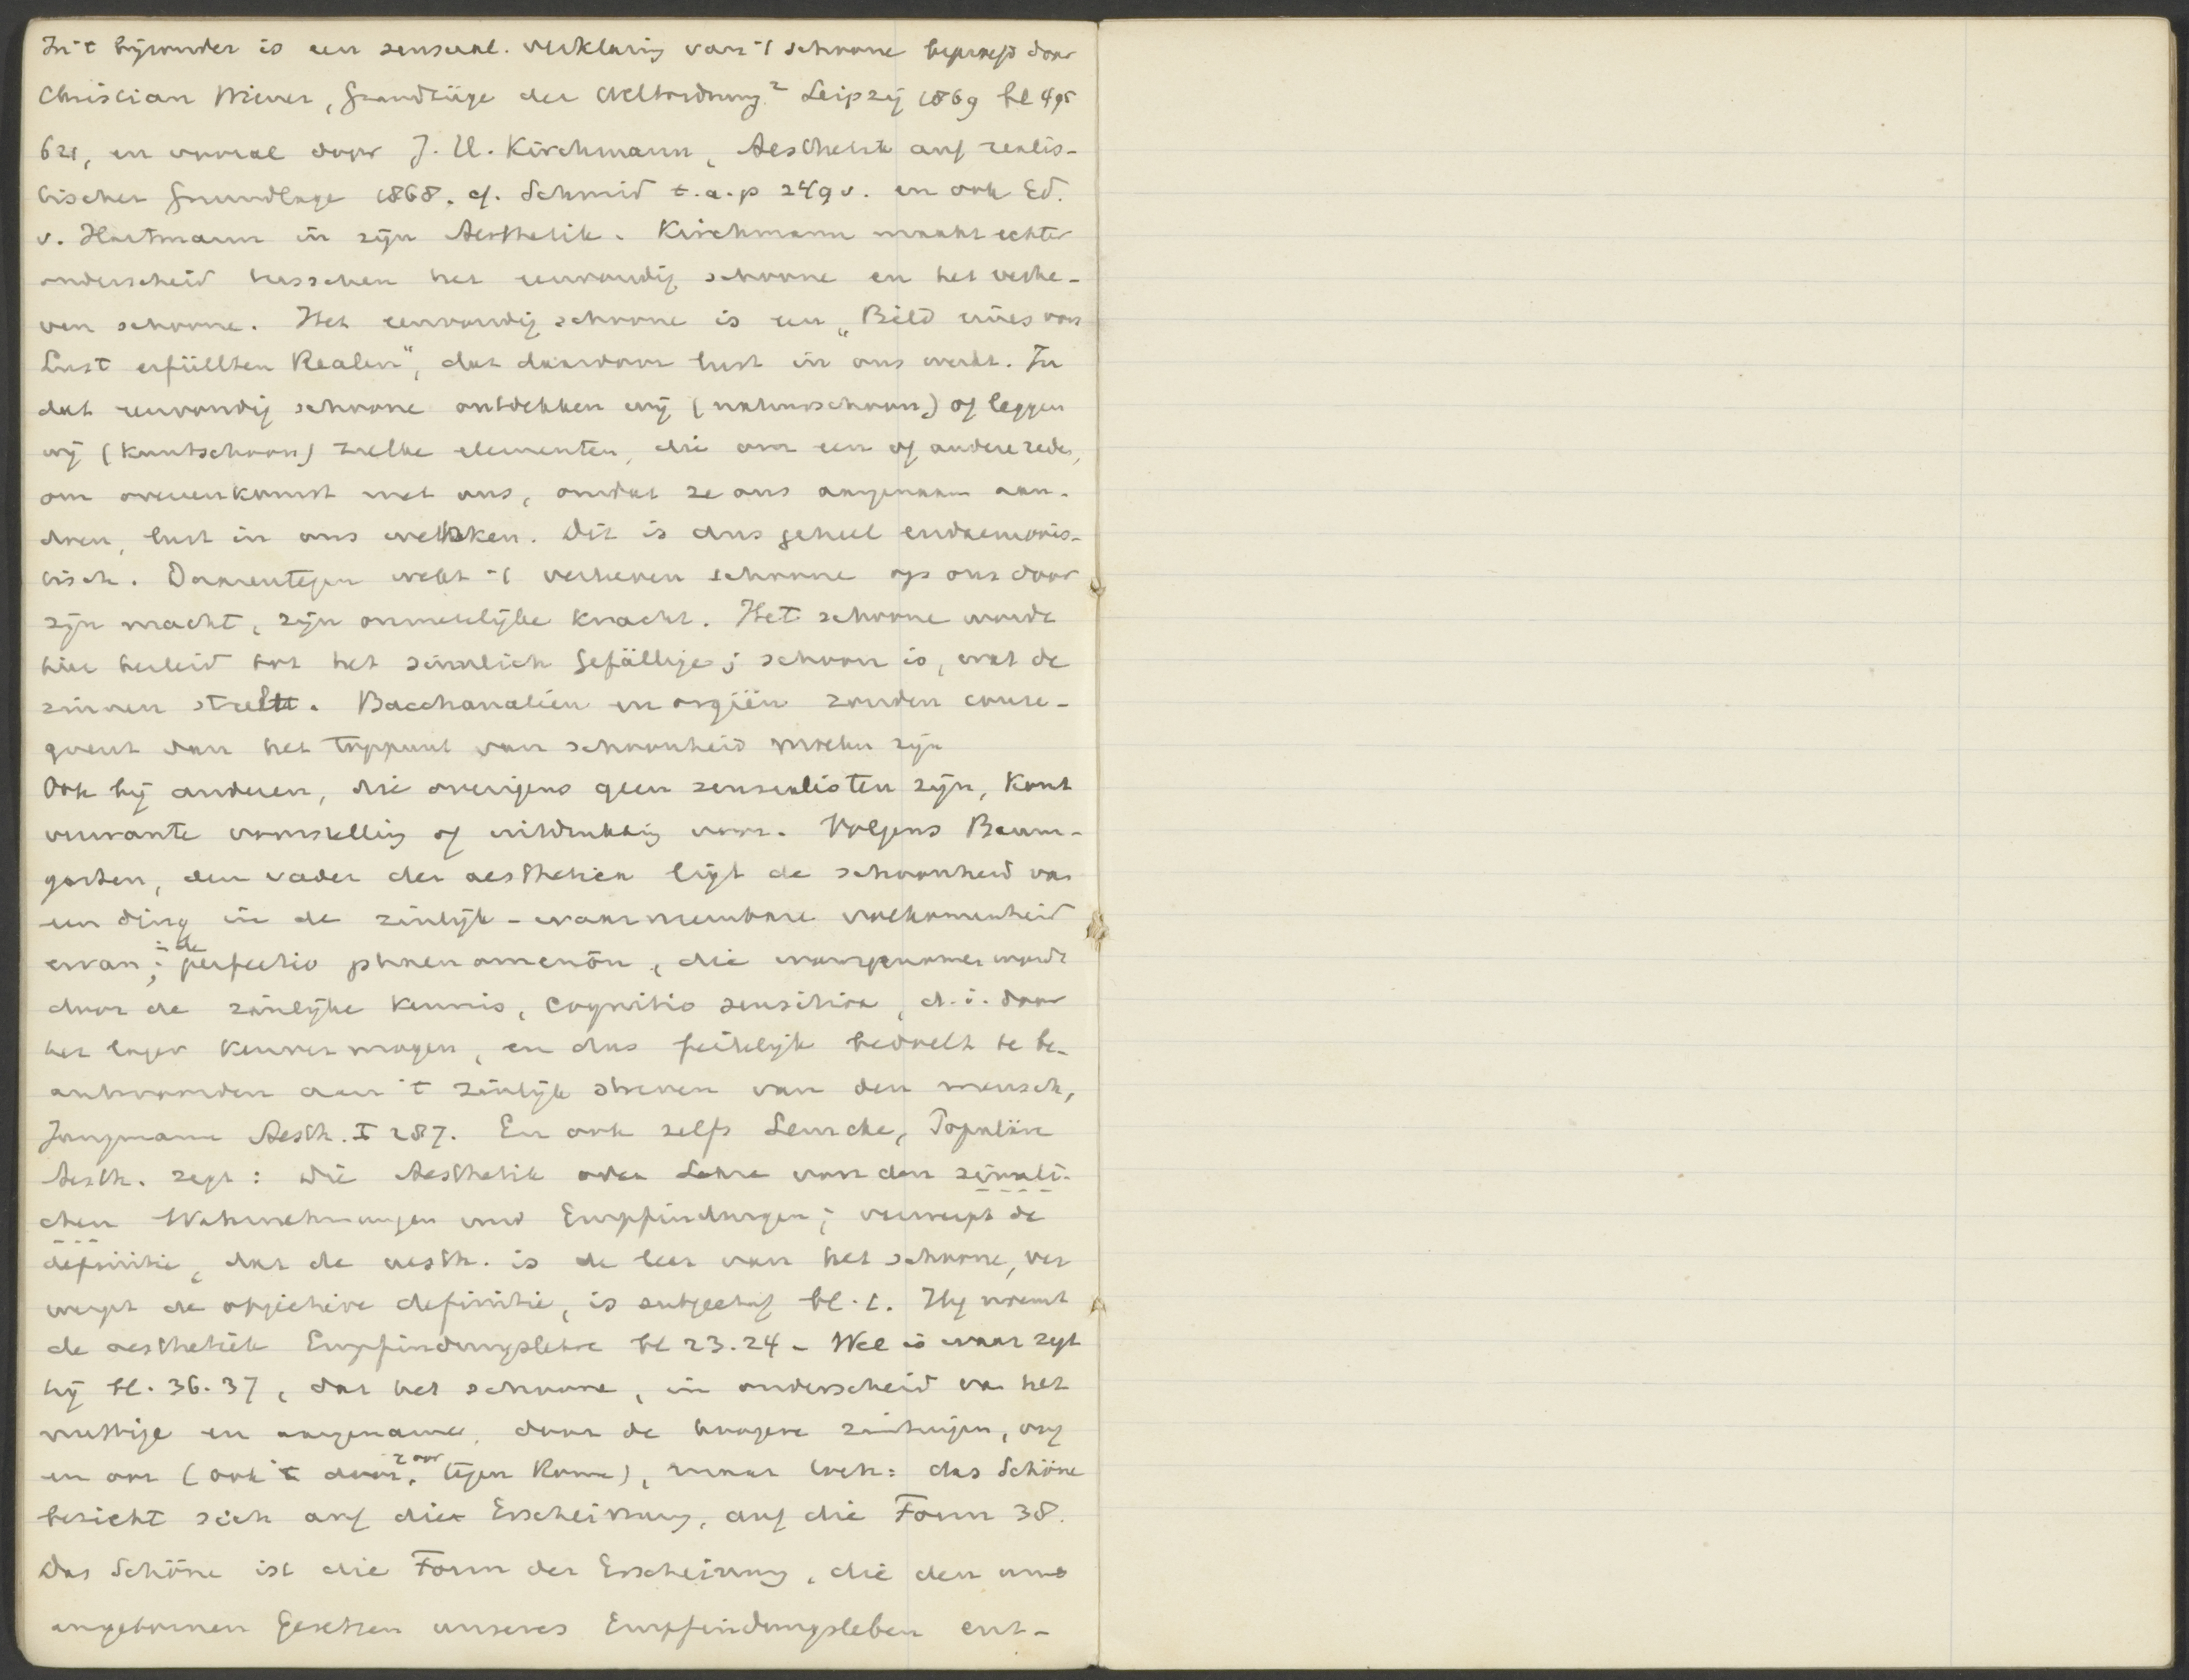 In 't bijzonder is een sensual. verklaring van 't schoone beproefd door
Christian Wiener, Grundzüge der Weltordnung² Leipzig 1869 bl 495
621, en vooral door J. H. Kirchmann, Aesthetik auf realis-
tischer Grundlage 1868. cf. Schmid t.a.p 249 v. en ook Ed.
v. Hartmann in zijn Aesthetik. Kirchmann maakt echter
onderscheid tusschen het eenvoudig schoone en het verhe-
ven schoone. Het eenvoudig schoone is een „Bild eines von
Lust erfüllten Realen", dat daardoor lust in ons werkt. In
dat eenvoudig schoone ontdekken wij (natuurschoon) of leggen
wij (kunstschoon) zulke elementen, die om een of andere reden,
om overeenkomst met ons, omdat ze ons aangenaam aan-
doen, lust in ons wekken. Dit is dus geheel eudaemonis-
tisch. Daarentegen werkt 't verheven schoone op ons door
zijn macht, zijn onmetelijke kracht. Het schoone wordt
hier herleid tot het sinnlich Gefällige; schoon is, wat de
zinnen streelt. Bacchanaliën en orgiën zouden conse-
quent dan het toppunt van schoonheid moeten zijn
Ook bij anderen, die overigens geen sensualisten zijn, komt
verwante voorstelling of uitdrukking voor. Volgens Baum-
garten, den vader der aesthetica ligt de schoonheid van
een ding in de zinlijk-waarneembare volkomenheid
ervan; in de perfectio phaenomenōn, die waargenomen wordt
door de zinlijke kennis, cognitio sensitiva, d.i. door
het lager kenvermogen, en dus feitelijk bedoelt te be-
antwoorden aan 't zinlijk streven van den mensch,
Jungmann Aesth. I 287. En ook zelfs Lemcke, Populäre
Aesth. zegt: Die Aesthetik oder Lehre von den sinnli-
chen Wahrnehmungen und Empfindungen; verwerpt de
definitie, dat de aesth. is de leer van het schoone, ver
werpt de objectieve definitie, is subjectief bl. 1. Hij noemt
de aesthetik Empfindungslehre bl 23.24 - Wel is waar zegt
hij bl. 36.37, dat het schoone, in onderscheid van het
nuttige en aangename, door de hoogere zintuigen, oog
en oor (ook 't door, tegen ), maar toch: das Schöne
bezieht sich auf die Erscheinung, auf die Form 38.
Das Schöne ist die Form der Erscheinung, die den uns
angebornen Gesetzen unseres Empfindungsleben ent-